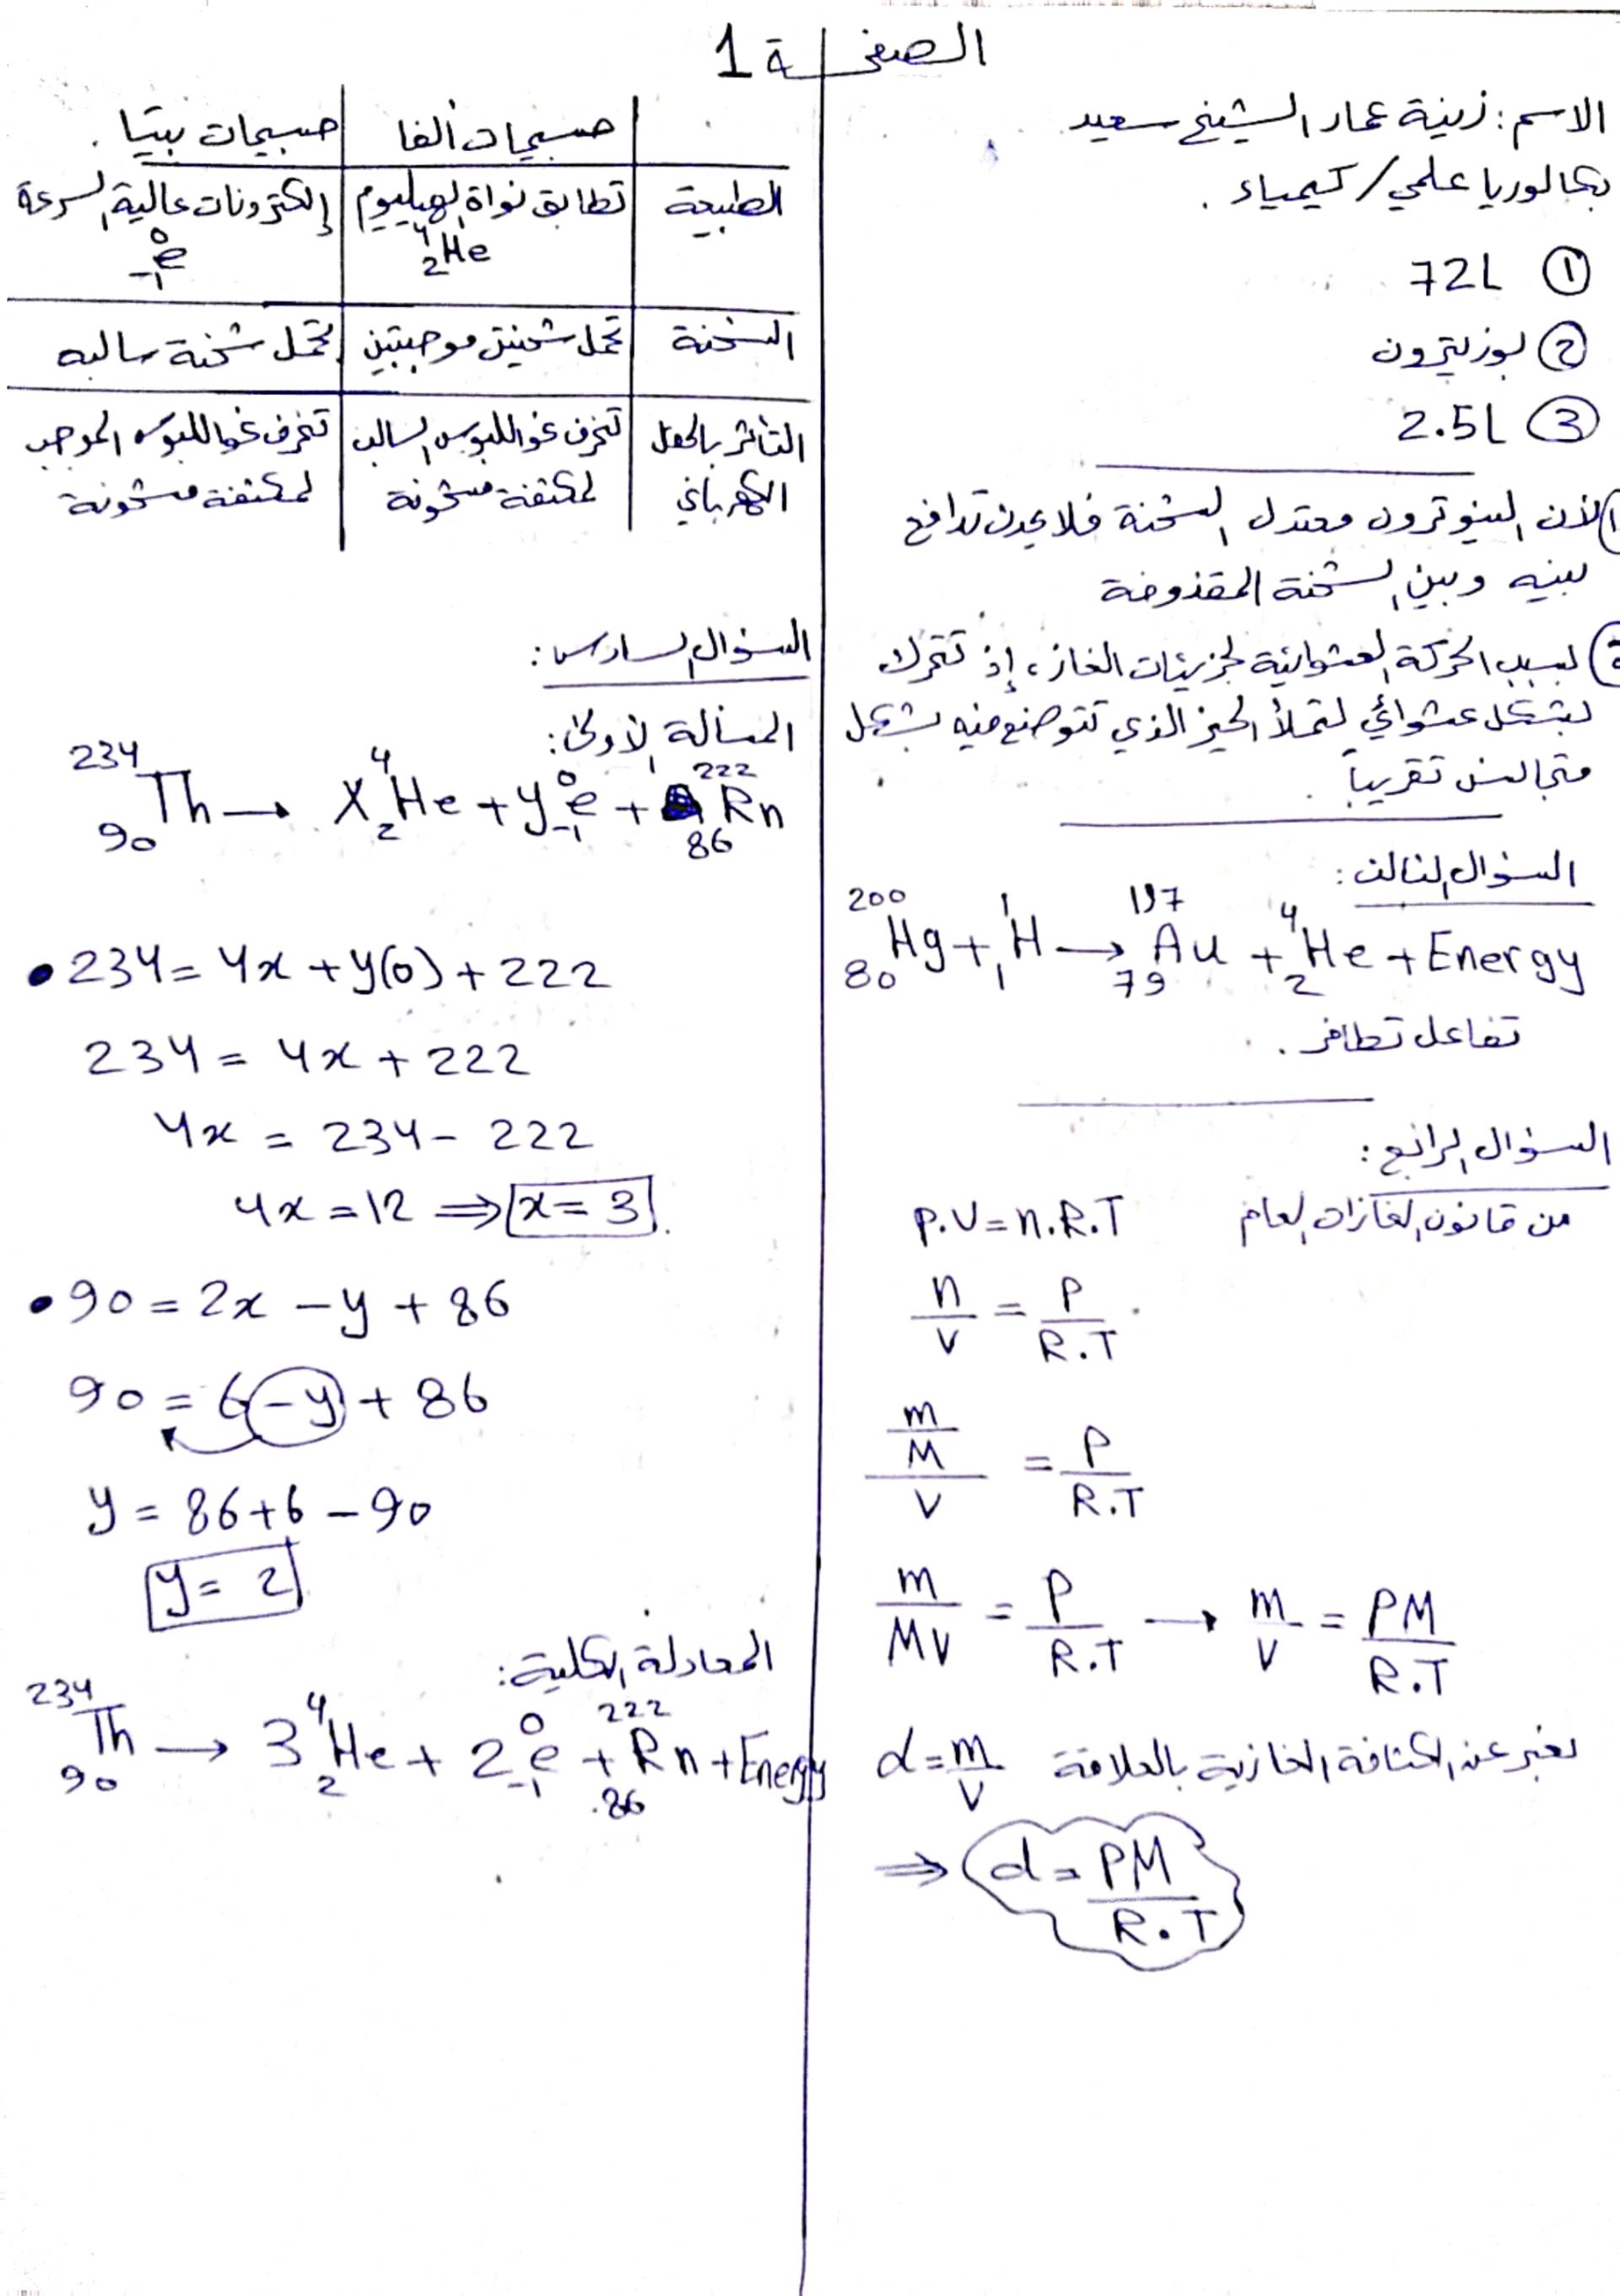 الصفحة 1
الاسم: زينة عمار الشيخ سعيد
بكالوريا علمي / كيمياء.
① 72L
② بوزيترون
③ 2.5L
1) لأن النيوترون معتدل الشحنة فلا يحدث تدافع
بينه وبين الشحنة المقذوفة
2) بسبب الحركة العشوائية لجزيئات الغاز، إذ تتحرك
بشكل عشوائي لتملأ الحيز الذي تتوضع فيه بشكل
متجانس تقريباً.
السؤال الثالث:
²⁰⁰₈₀Hg + ¹₁H → ¹⁹⁷₇₉Au + ⁴₂He + Energy
تفاعل تطافر.
السؤال الرابع:
من قانون الغازات العام P.V = n.R.T
n/V = P/R.T
(m/M)/V = P/R.T
m/MV = P/R.T → m/V = PM/R.T
نعبر عن الكثافة الغازية بالعلاقة d = m/V
⇒ d = PM/R.T
جسيمات ألفا | جسيمات بيتا.
الطبيعة | تطابق نواة الهيليوم ⁴₂He | إلكترونات عالية السرعة ⁰₋₁e
الشحنة | تحمل شحنتين موجبتين | تحمل شحنة سالبه
التأثر بالحقل الكهربائي | تنحرف نحو اللبوس السالب لمكثفة مشحونة | تنحرف نحو اللبوس الموجب لمكثفة مشحونة
السؤال السادس:
المسألة الأولى:
²³⁴₉₀Th → X⁴₂He + y⁰₋₁e + ²²²₈₆Rn
• 234 = 4x + y(0) + 222
234 = 4x + 222
4x = 234 - 222
4x = 12 ⇒ x = 3.
• 90 = 2x - y + 86
90 = 6 - y + 86
y = 86 + 6 - 90
y = 2
المعادلة الكلية:
²³⁴₉₀Th → 3⁴₂He + 2⁰₋₁e + ²²²₈₆Rn + Energy